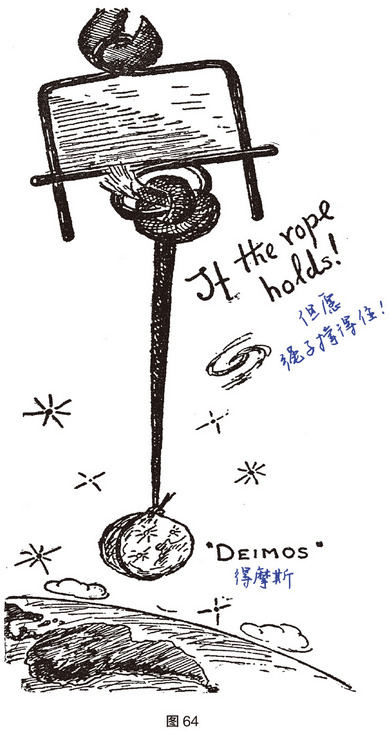 If the rope
holds!
但愿
绳子撑得住!
"DEIMOS"
得摩斯
图 64